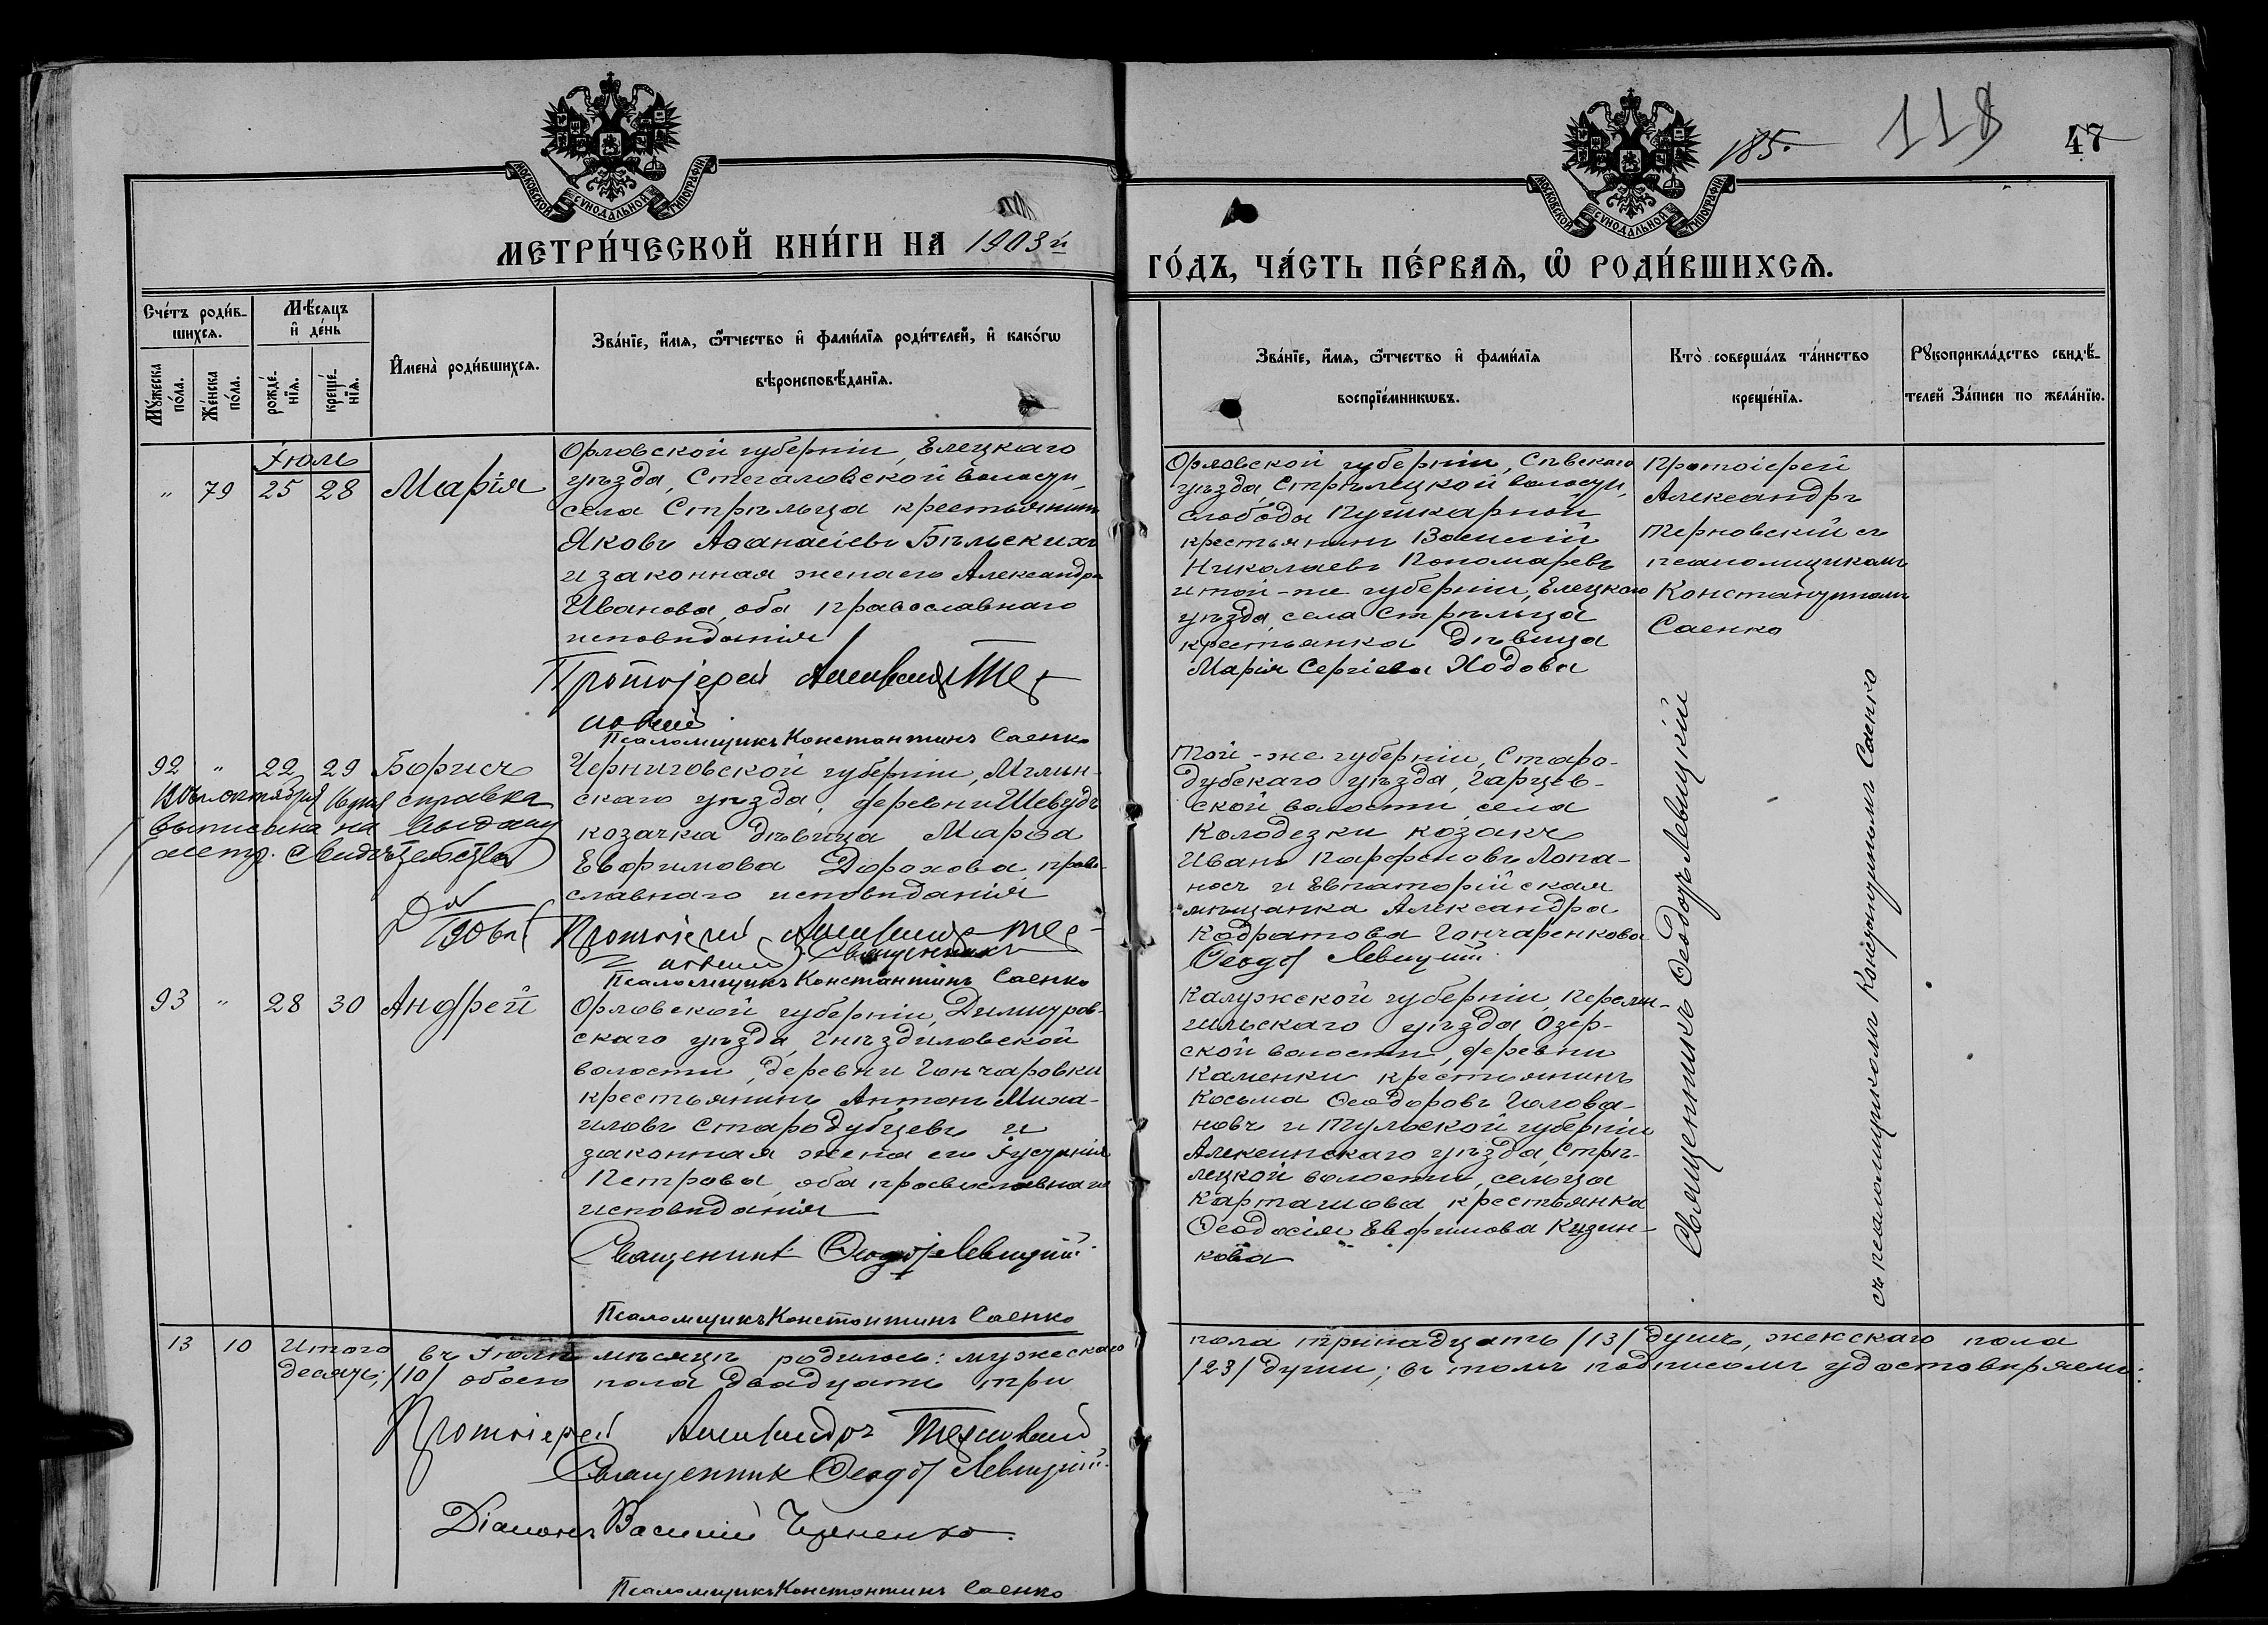 185.
118
47
МОСКОВСКОЙ СѴНОДАЛЬНОЙ ТИПОГРАФІИ
МОСКОВСКОЙ СѴНОДАЛЬНОЙ ТИПОГРАФІИ
МЕТРИ́ЧЕСКОЙ КНИ́ГИ НА 1903й
ГО́ДЪ, ЧА́СТЬ ПЕ́РВАѦ, Ѿ РОДИ́ВШИХСѦ.
Сче́тъ роди́в-
шихсѧ.
Мѣ́сѧцъ
и҆ де́нь
Му́жеска
по́ла.
Же́нска
по́ла.
рожде́-
нїѧ.
креще́-
нїѧ.
И҆мена̀ роди́вшихсѧ.
Зва́нїе, и҆́мѧ, ѻ҆́тчество и҆ фами́лїѧ роди́телей, и҆ како́гѡ
вѣроисповѣ́данїѧ.
Зва́нїе, и҆́мѧ, ѻ҆́тчество и҆ фами́лїѧ
воспрїе́мникѡвъ.
Кто̀ соверша́лъ та́инство
креще́нїѧ.
Рꙋкоприкла́дство свидѣ́-
телей За́писи по жела́нїю.
Іюль
" 79 25 28 Марія
Орловской губерніи, Елецкаго
уѣзда, Стегаловской волости,
села Стрѣльца крестьянинъ
Яковъ Аѳанасіевъ Бѣльскихъ
и законная жена его Александра
Иванова, оба православнаго
исповѣданія
Протоіерей Александръ Тер-
новскій
Псаломщикъ Константинъ Саенко
Орловской губерніи, Сѣвскаго
уѣзда, Стрѣлецкой волости,
слободы Пушкарной
крестьянинъ Василій
Николаевъ Пономаревъ
и той-же губерніи, Елецкаго
уѣзда, села Стрѣльца
крестьянка дѣвица
Марія Сергіева Ходова
Протоіерей
Александръ
Терновскій съ
псаломщикомъ
Константиномъ
Саенко
92 " 22 29 Борисъ
справка
выписана на выдачу
метр. свидѣтельства
1906 г.
Черниговской губерніи, Мглин-
скаго уѣзда, деревни
козачка дѣвица Марѳа
Евфимова Дорохова, право-
славнаго исповѣданія
Протоіерей Александръ Тер-
новскій Священникъ
Псаломщикъ Константинъ Саенко
Той-же губерніи, Старо-
дубскаго уѣзда, Гарцев-
ской волости, села
Колодезки козакъ
Иванъ Парфеновъ Лопа-
носъ и Евпаторійская
мѣщанка Александра
Кодратова Гончаренкова
Ѳеодоръ Левицкій
93 " 28 30 Андрей
Орловской губерніи, Димитров-
скаго уѣзда, Гнѣздиловской
волости, деревни Гончаровки
крестьянинъ Антонъ Миха-
иловъ Стародубцевъ и
законная жена его Іустинія
Петрова, оба православнаго
исповѣданія
Священникъ Ѳеодоръ Левицкій
Псаломщикъ Константинъ Саенко
Калужской губерніи, Перемы-
шльскаго уѣзда, Озер-
ской волости, деревни
Каменки крестьянинъ
Косьма Ѳеодоровъ Голова-
новъ и Тульской губерніи
Алексинскаго уѣзда, Стрѣ-
лецкой волости, сельца
Карташова крестьянка
Ѳеодосія Евфимова Кузин-
кова
Священникъ Ѳеодоръ Левицкій
съ псаломщикомъ Константиномъ Саенко
13 10 Итого въ Іюлѣ мѣсяцѣ родилось: мужескаго пола тринадцать /13/ душъ, женскаго пола
десять /10/ обоего пола двадцать три /23/ души; въ томъ подписомъ удостовѣряемъ:
Протоіерей Александръ Терновскій
Священникъ Ѳеодоръ Левицкій
Діаконъ Василій
Псаломщикъ Константинъ Саенко